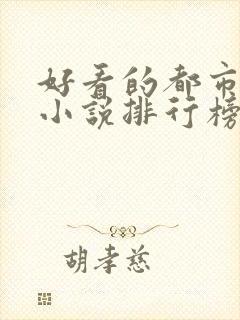 好看的都市
小说排行榜
胡孝慈